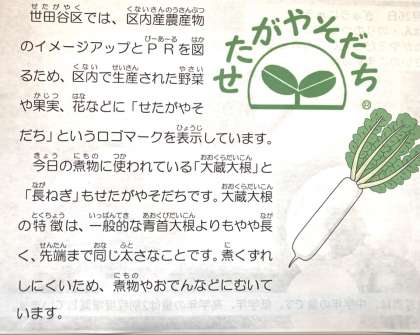 せたがやそだち
®
世田谷区では、区内産農産物
のイメージアップとＰＲを図
るため、区内で生産された野菜
や果実、花などに「せたがやそ
だち」というロゴマークを表示しています。
今日の煮物に使われている「大蔵大根」と
「長ねぎ」もせたがやそだちです。大蔵大根
の特徴は、一般的な青首大根よりもやや長
く、先端まで同じ太さなことです。煮くずれ
しにくいため、煮物やおでんなどにむいて
います。